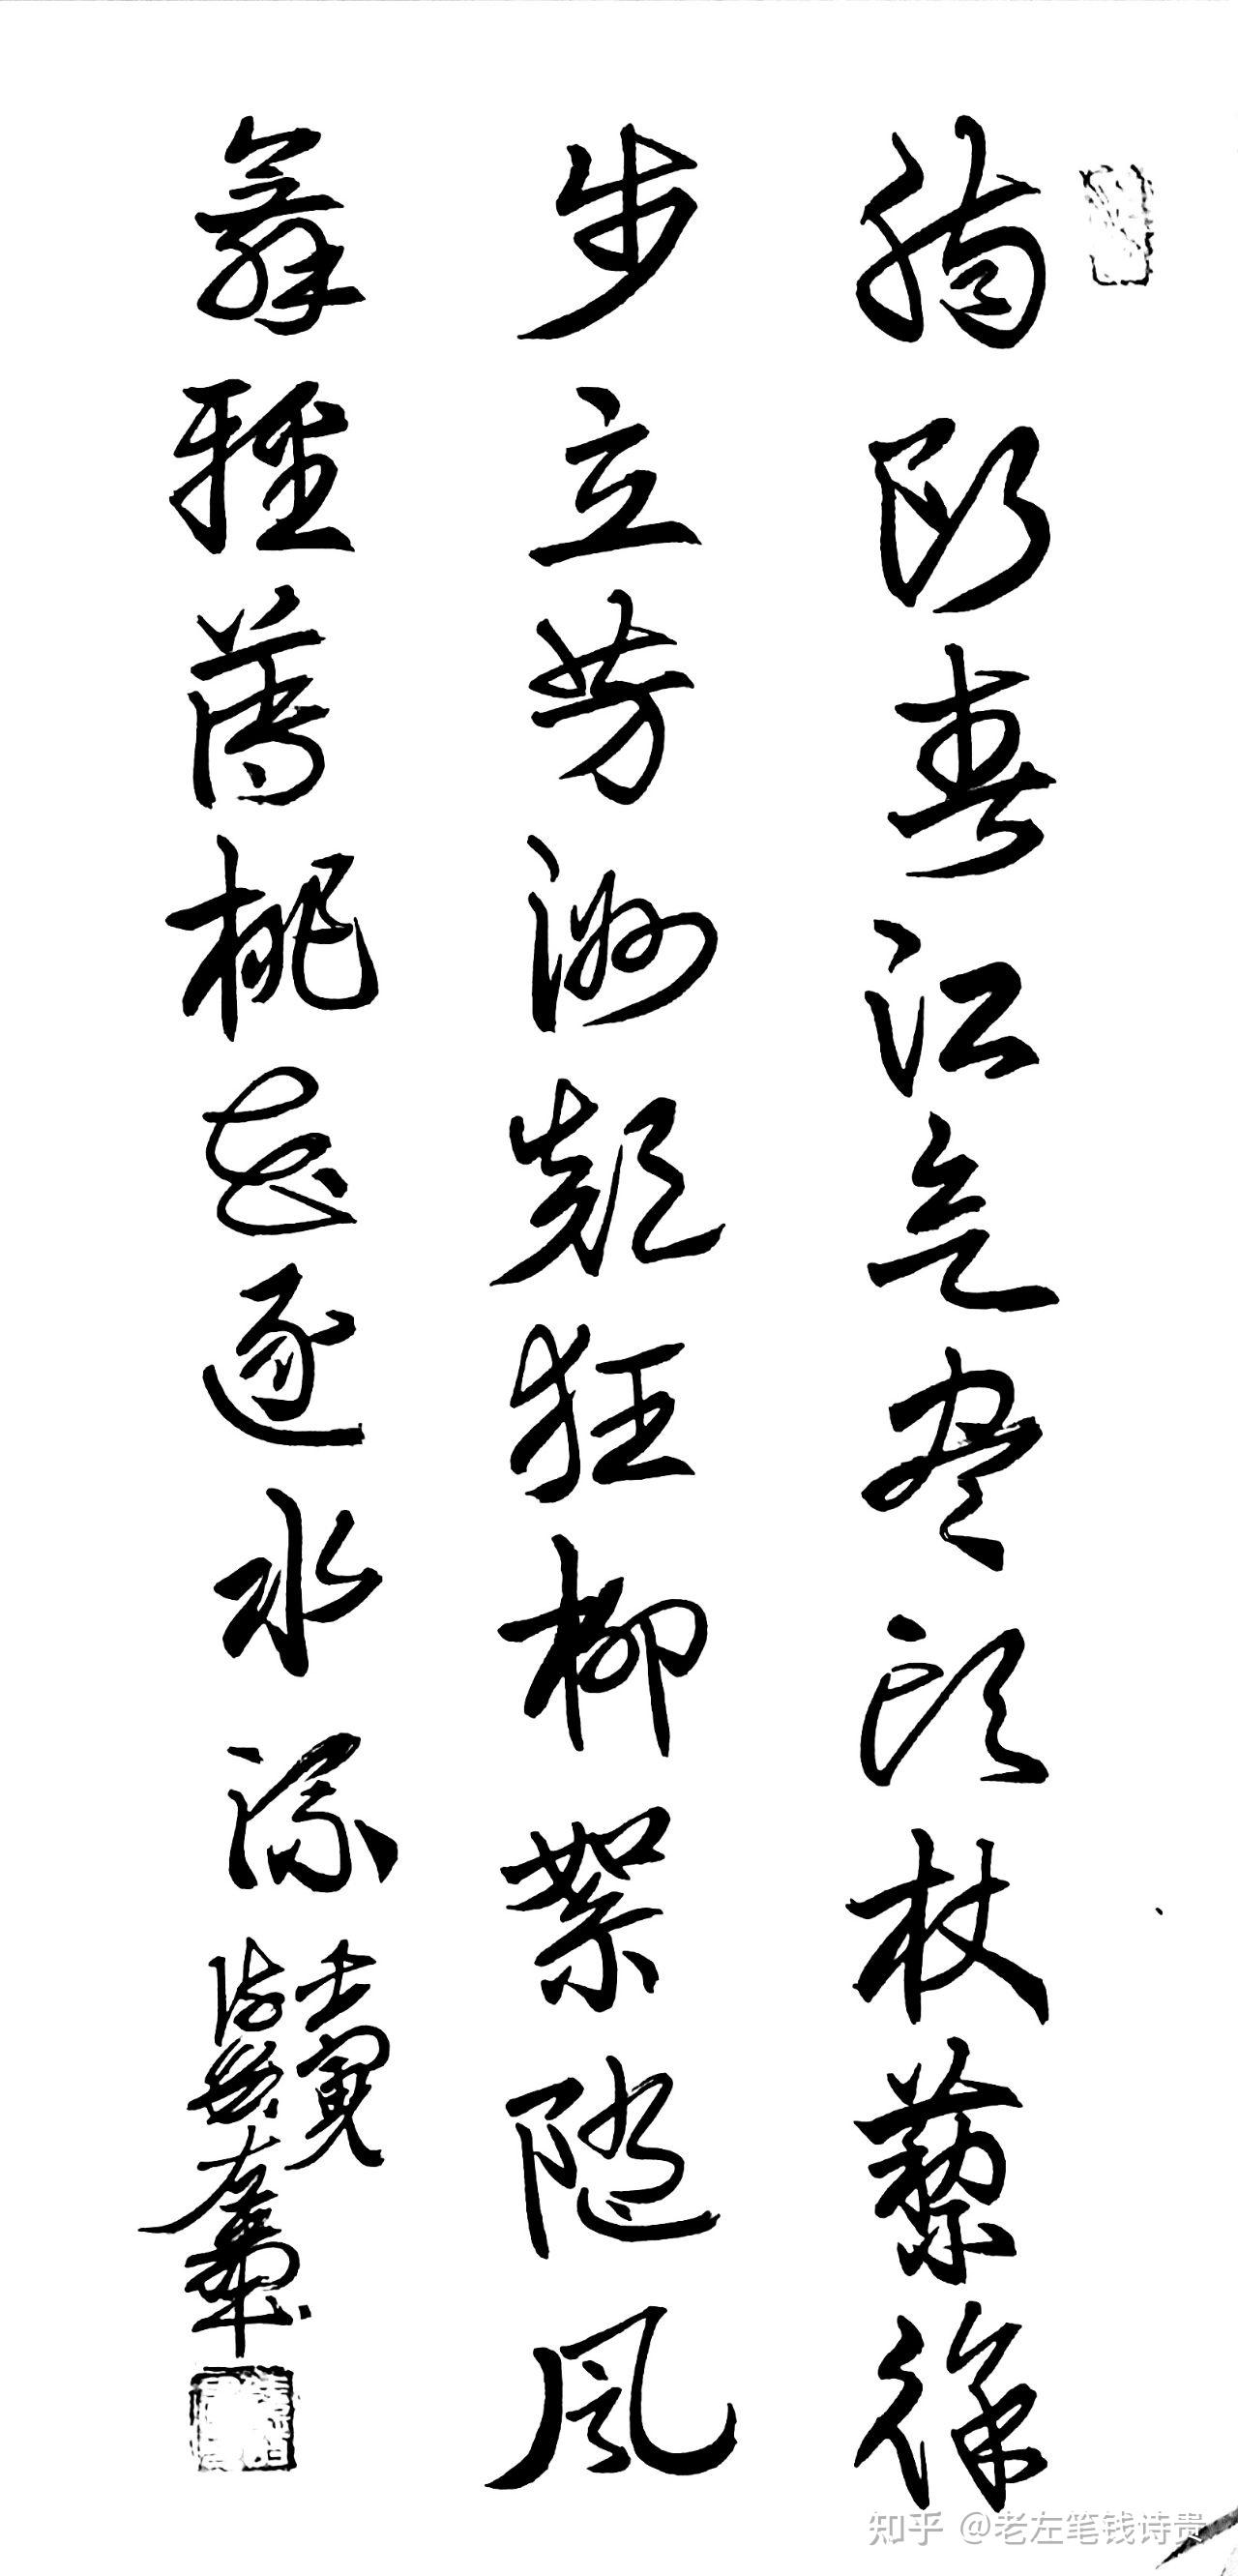 肠断春江欲尽头杖藜徐
步立芳洲颠狂柳絮随风
舞轻薄桃花逐水流
知乎 @老左笔钱诗贵